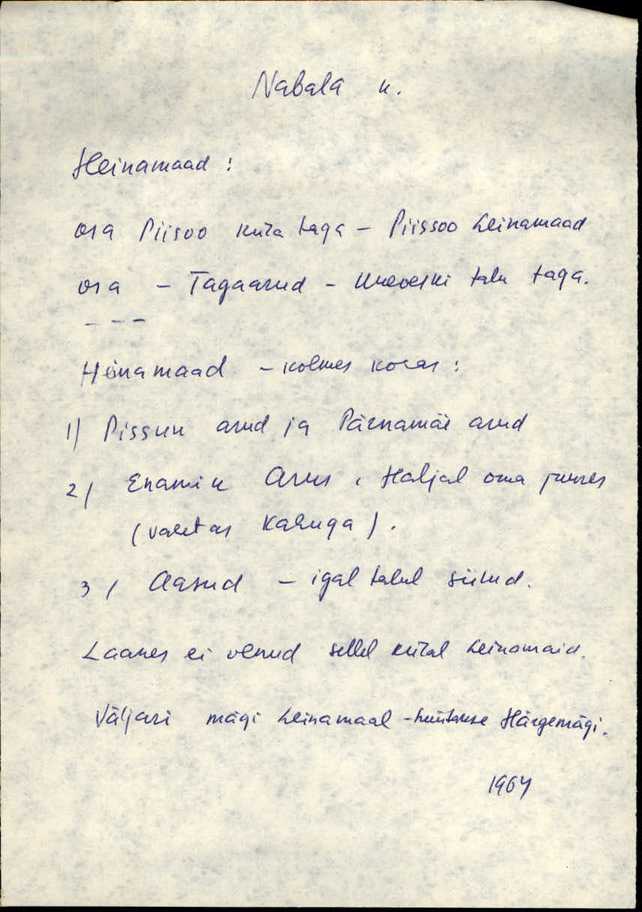 Nabala k.
Heinamaad :
osa Piisoo küla taga - Piissoo heinamaad
osa - Tagaarud - talu taga.
- - -
Heinamaad - kolmes kohas :
1) Pissuu arud ja Pärnamäe arud
2) Enamik Arus, Haljal oma juures
(vahetas Kaluga).
3) Aasud - igal talul siilud.
Laanes ei olnud sellel külal heinamaid.
Väljari mägi heinamaal - hüütakse Härgemägi.
1964